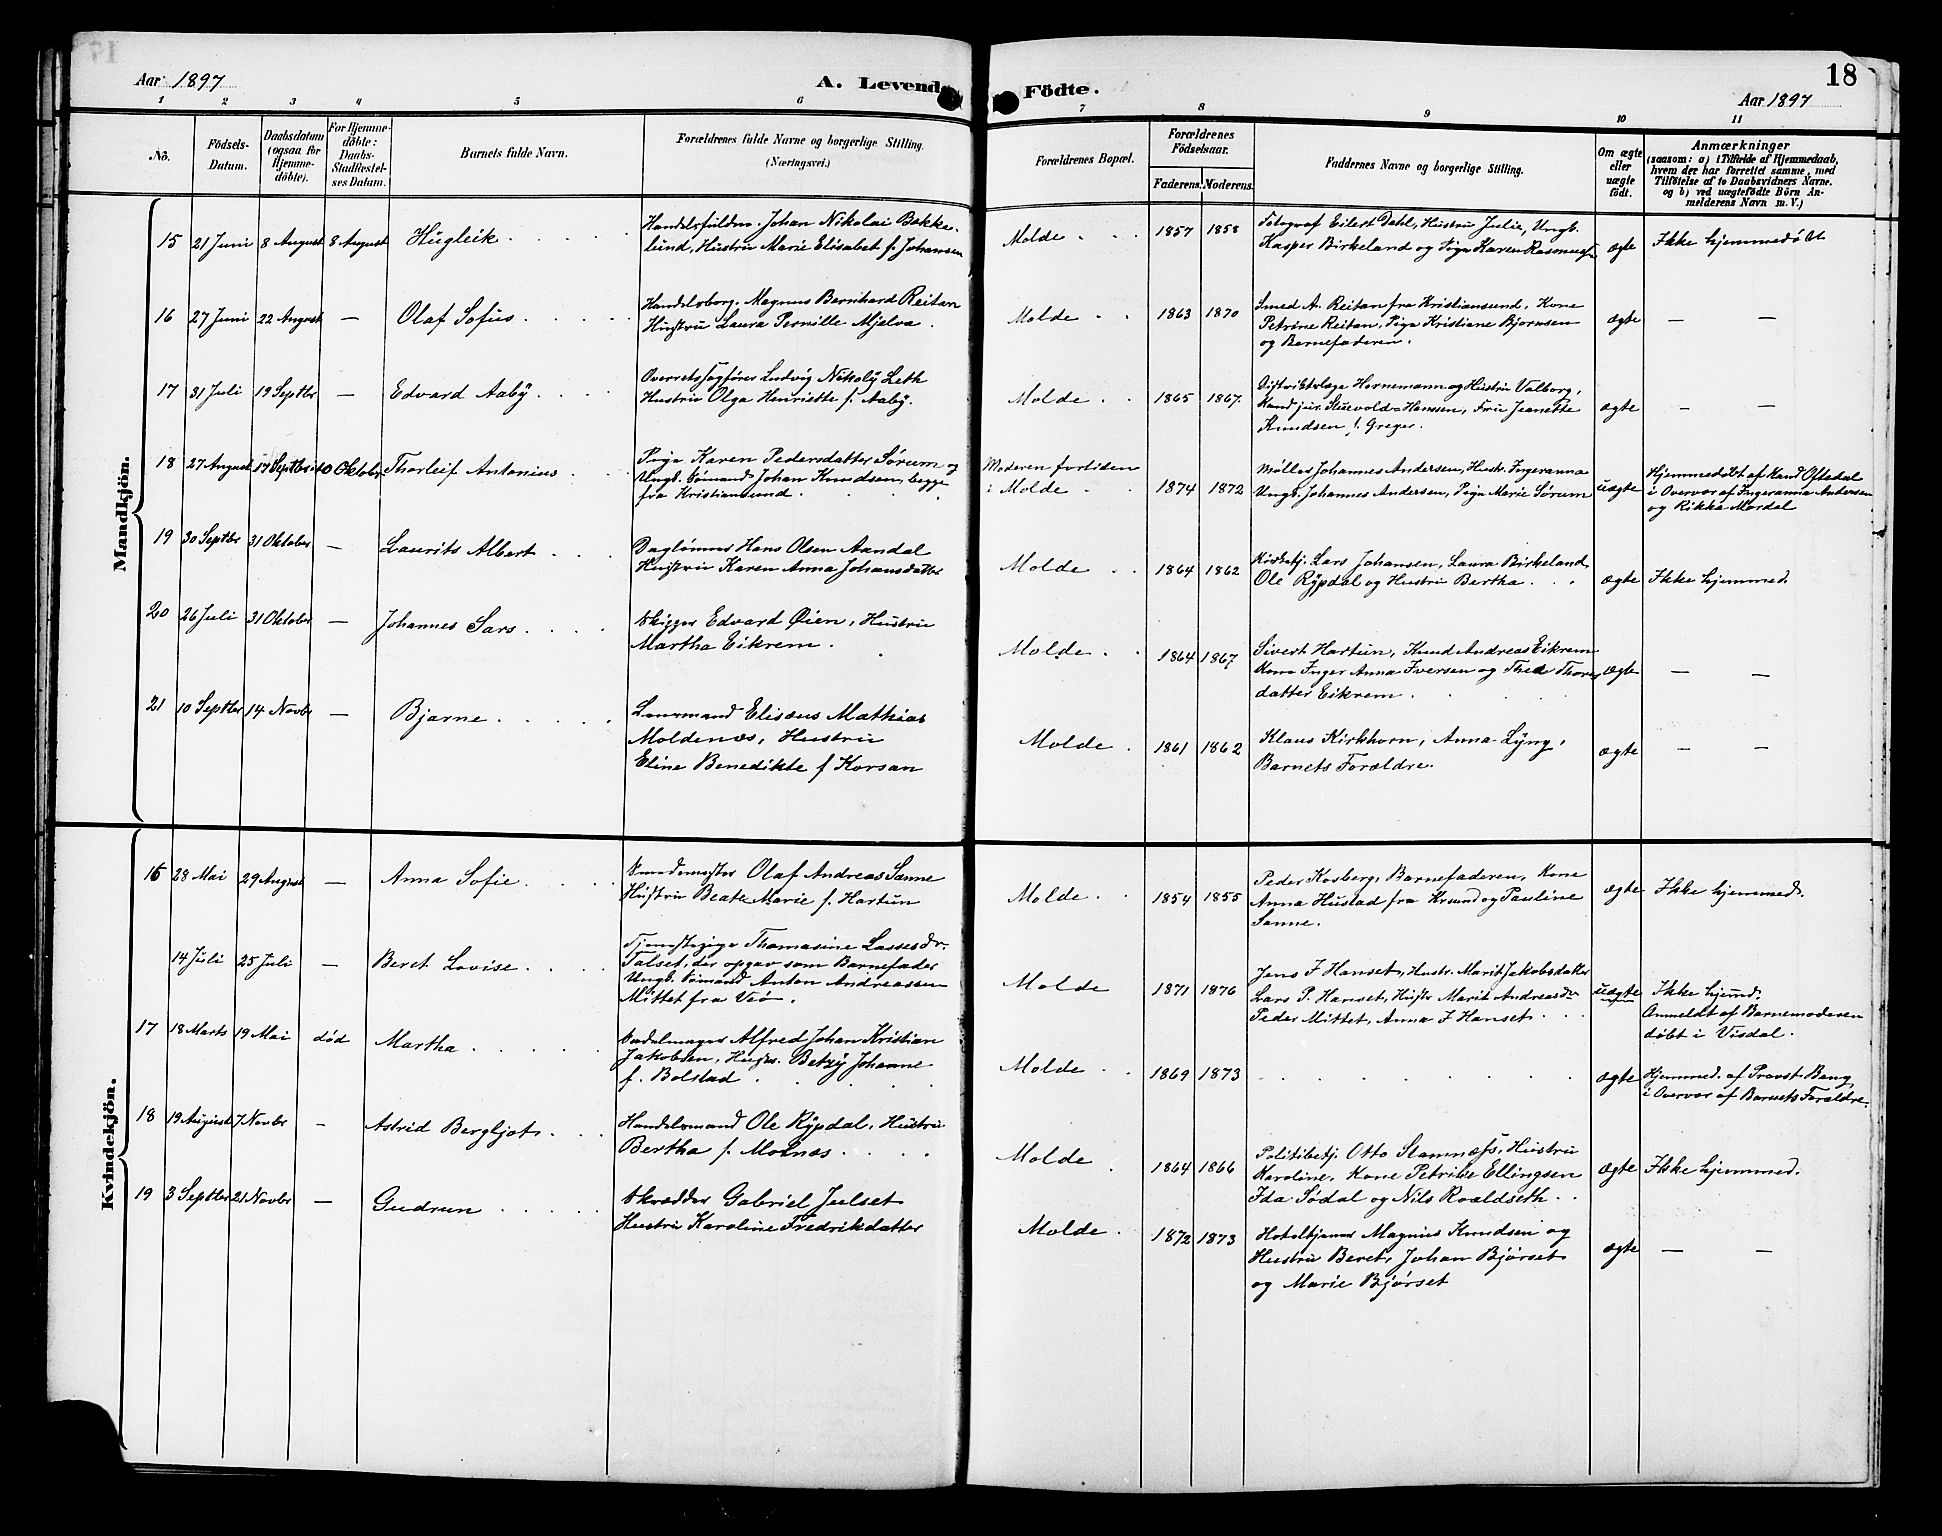 Aar 1897
A. Levende
Födte.
18
Aar 1897
1 2 3 4 5 6 7 8 9 10 11
No.
Födsels-
Datum.
Daabsdatum
(ogsaa for
Hjemme-
döbte).
For Hjemme-
döbte:
Daabs-
Stadfæstel-
ses Datum.
Barnets fulde Navn.
Forældrenes fulde Navne og borgerlige Stilling.
(Næringsvei.)
Forældrenes Bopæl.
Forældrenes
Födselsaar.
Faderens. Moderens.
Faddernes Navne og borgerlige Stilling.
Om ægte
eller
uægte
födt.
Anmærkninger
(saasom: a) i Tilfælde af Hjemmedaab,
hvem der har forrettet samme, med
Tilföielse af to Daabsvidners Navne.
og b) ved uægtefödte Börn An-
melderens Navn m. V.)
Mandkjön.
15 21 Juni 8 August 8 August Hugleik
Handelsfuldm. Johan Nikolai Bekke-
lund, Hustru Marie Elisabet f. Johansen
Molde 1857 1858
Fotograf Eilert Dahl, Hustru Julie, Ungk.
Kasper Birkeland og Pige Karen Rasmuss
ægte Ikke hjemmedøbt
16 27 Juni 22 August — Olaf Sofus
Handelsborg. Magnus Bernhard Reitan
Hustru Laura Pernille Mjelva.
Molde 1863 1870
Smed A. Reitan fra Kristiansund, Kone
Petrine Reitan, Pige Kristiane Bjørnsen
og Barnefaderen.
ægte — —
17 31 Juli 19 Septbr — Edvard Aaby
Overretssagfører Ludvig Nikolÿ Leth
Hustru Olga Henriette f. Aaby.
Molde 1865 1867.
Distriktslæge Hornemann og Hustru Valborg,
Kand jur. Stuevold-Hanssen, Fru Jeanette
Knudsen f. Greger.
ægte — —
18 27 August 17 Septbr 10 Oktober Thorleif Antonius
Pige Karen Pedersdatter Sørum og
Ungk. Sømand Johan Knudsen, begge
fra Kristiansund.
Moderen fortiden
i Molde 1874 1872
Møller Johannes Andersen, Hustr. Ingeranna
Ungk. Johannes Andersen, Pige Marie Sørum
uægte
Hjemmedøbt af Kand Oftedal
i Overvær af Ingeranna Andersen
og Rikka Mordal
19 30 Septbr 31 Oktober — Laurits Albert
Daglønner Hans Olsen Aandal
Hustru Karen Anna Johansdatter
Molde 1864 1862
Kirketj. Lars Johansen, Laura Birkeland
Ole Rÿpdal og Hustru Bertha
ægte Ikke hjemmed.
20 26 Juli 31 Oktober — Johannes Sars
Skipper Edvard Øien, Hustru
Martha Eikrem.
Molde 1864 1867
Sivert Hartun, Knud Andreas Eikrem
Kone Inger Anna Iversen og Thea Thores
datter Eikrem.
ægte — —
21 10 Septbr 14 Novbr — Bjarne
Lensmand Elisæus Mathias
Moldenæs, Hustru
Eline Benedikte f Korsan
Molde 1861 1862
Klaus Kirkhorn, Anna Lÿng,
Barnets Forældre.
ægte — —
Kvindekjön.
16 28 Mai 29 August — Anna Sofie
Smedemester Olaf Andreas Sanne
Hustru Beate Marie f. Hartun
Molde 1854 1855
Peder Kosberg, Barnefaderen, Kone
Anna Hustad fra Krsund og Pauline
Sanne.
ægte Ikke hjemmed.
14 Juli 25 Juli — Beret Lovise
Tjenestepige Thomasine Lassesdr.
Talset, der opgav som Barnefader
Ungk. Sømand Anton Andreassen
Mittet fra Veø.
Molde 1871 1876
Jens J Hanset, Hustr. Marit Jakobsdatter
Lars P. Hanset, Hustr Marit Andreasdr
Peder Mittet, Anna J Hanset
uægte
Ikke hjemd.
Anmeldt af Barnemoderen
døbt i Visdal.
17 18 Marts 19 Mai død Martha
Sadelmager Alfred Johan Kristian
Jakobsen, Hustr. Betzÿ Johanne
f. Bolstad
Molde 1869 1873
ægte
Hjemmed. af Provst Bang
i Overvær af Barnets Forældre.
18 19 August 7 Novbr — Astrid Bergljot
Handelsmand Ole Rÿpdal, Hustru
Bertha f. Molnæs
Molde 1864 1866
Politibetj. Otto Stamnæss, Hustru
Karoline, Kone Petrikke Ellingsen
Ida Sødal og Nils Roaldseth
ægte Ikke hjemmed.
19 3 Septbr 21 Novbr — Gudrun
Skrædder Gabriel Julset
Hustru Karoline Fredrikdatter
Molde 1872 1873
Hotelltjener Magnus Knudsen og
Hustru Beret, Johan Bjørset
og Marie Bjørset
ægte — —